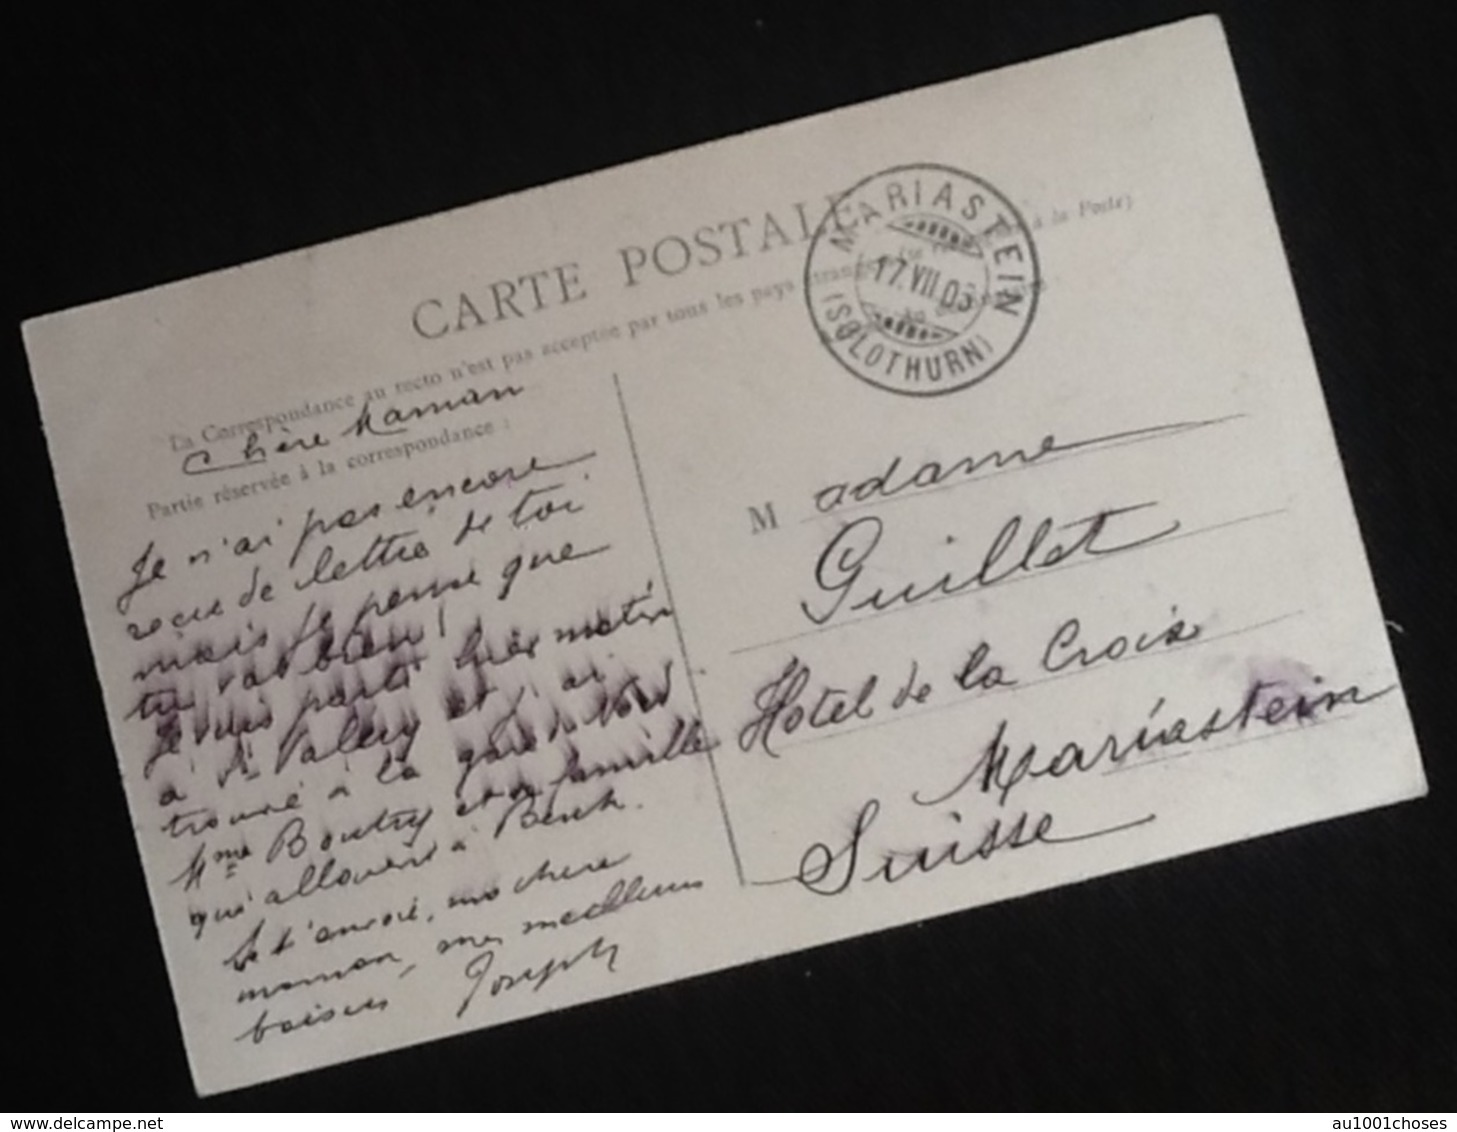 CARTE POSTALE
La Correspondance au recto n'est pas acceptée par tous les pays étrangers
à la Poste)
Partie réservée à la correspondance :
MARIASTEIN
17.VII.03
(SOLOTHURN)
Chère Maman
Je n'ai pas encore
reçu de lettre de toi
mais je pense que
tu vas bien!
Je suis parti hier matin
à St Valery et j'ai
trouvé à la gare
Mme Boutry et sa famille
qui allaient à Berck.
Je t'envoie, ma chère
maman, mes meilleurs
baisers Joseph
Madame
Guillet
Hôtel de la Croix
Mariastein
Suisse
www.delcampe.net
au1001choses